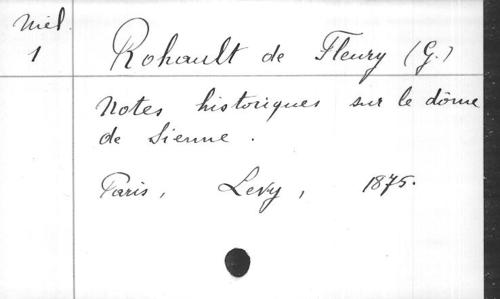 Miel.
1
Rohault de Fleury (G.)
Notes historiques sur le dôme
de Sienne.
Paris, Levy, 1875.